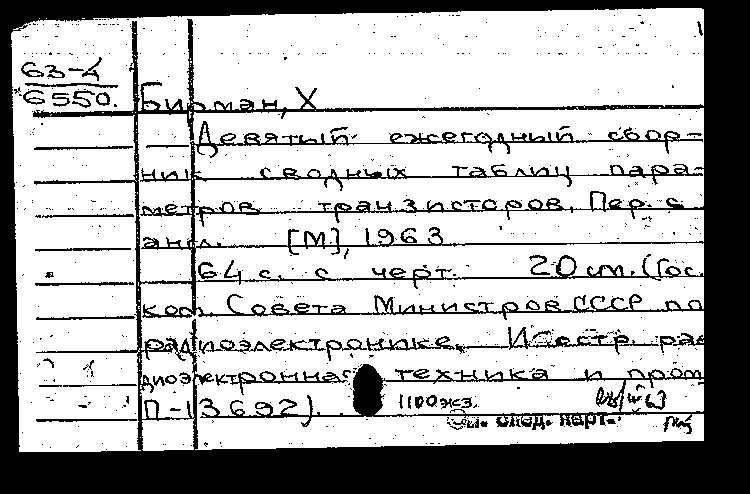 63-4
6550.
Бирман, Х
Девятый ежегодный сбор-
ник сводных таблиц пара-
метров транзисторов. Пер. с
англ. [М], 1963
64 с. с черт. 20 см. (Гос.
ком. Совета Министров СССР по
радиоэлектронике. Иностр. ра
диоэлектронная техника и пром
П-13692).
1100 экз.
См. след. карт.